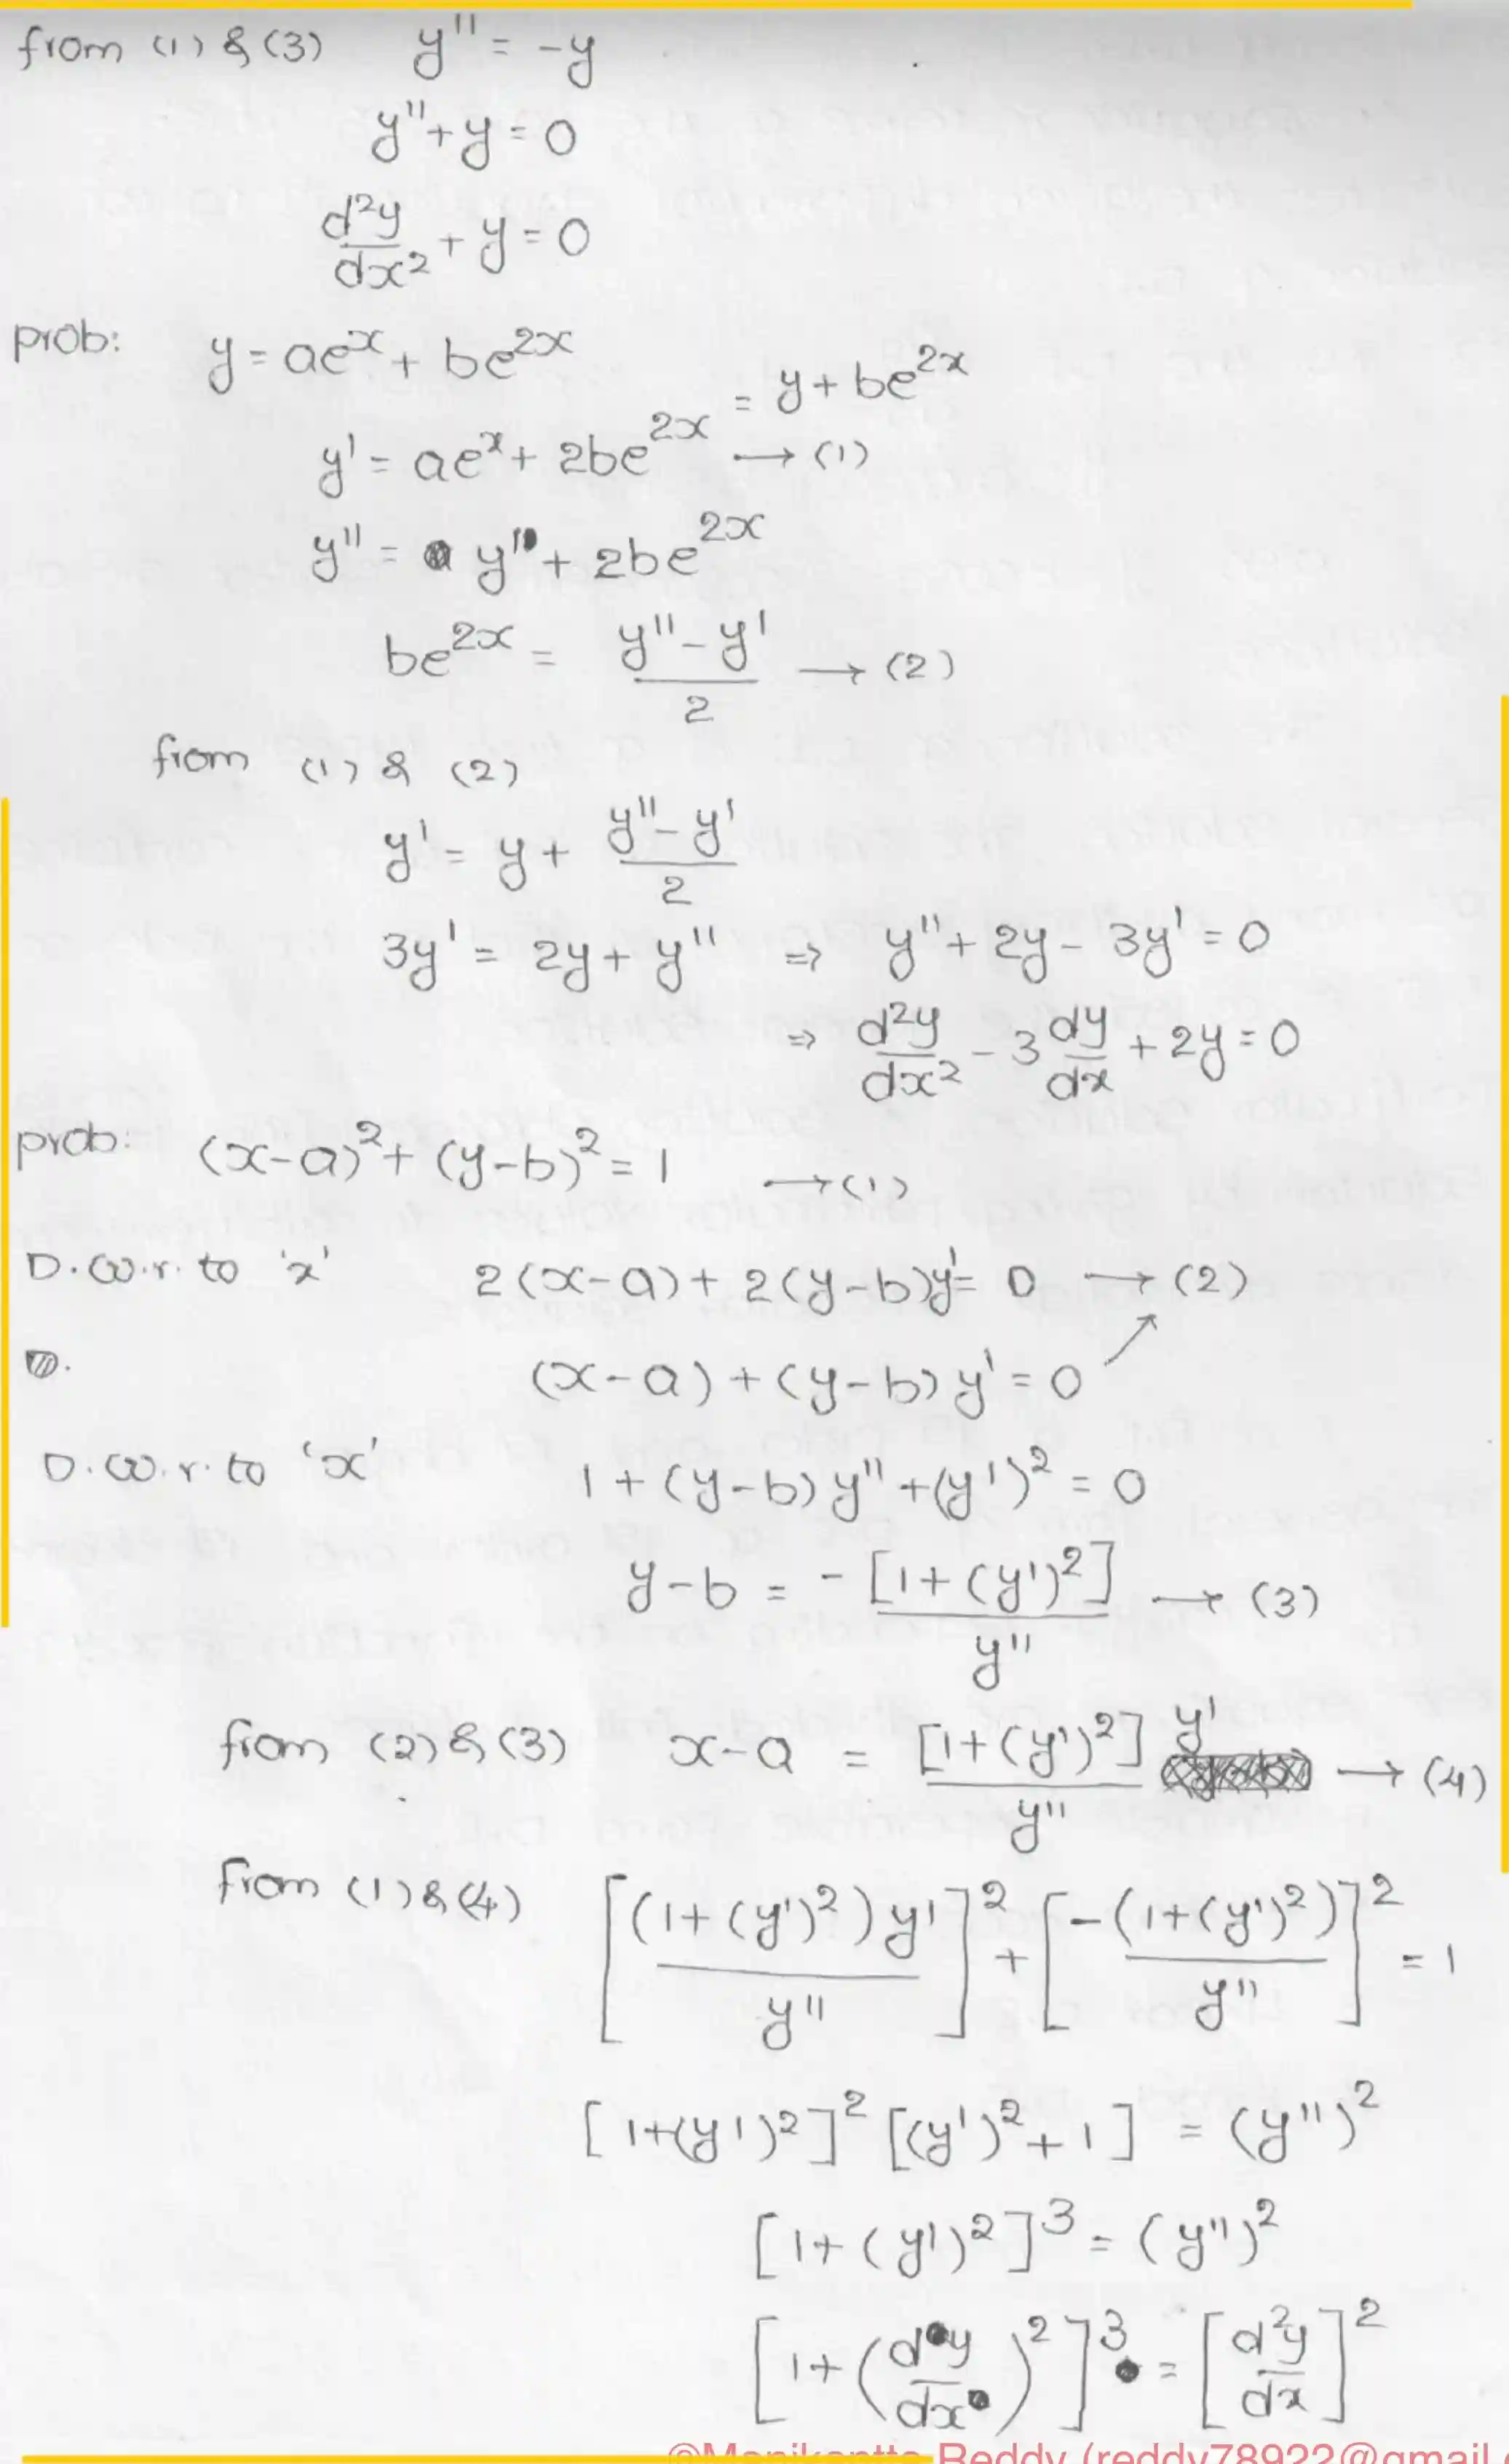 from (1) & (3) y'' = -y
y'' + y = 0
d²y/dx² + y = 0
prob: y = ae^x + be^2x
= y + be^2x
y' = ae^x + 2be^2x → (1)
y'' = y' + 2be^2x
be^2x = (y'' - y')/2 → (2)
from (1) & (2)
y' = y + (y'' - y')/2
3y' = 2y + y'' ⇒ y'' + 2y - 3y' = 0
⇒ d²y/dx² - 3 dy/dx + 2y = 0
prob: (x-a)² + (y-b)² = 1 → (1)
D.w.r. to 'x' 2(x-a) + 2(y-b)y' = 0 → (2)
(x-a) + (y-b) y' = 0
D.w.r. to 'x' 1 + (y-b) y'' + (y')² = 0
y-b = -[1+(y')²]/y'' → (3)
from (2) & (3) x-a = [1+(y')²]/y'' y' → (4)
from (1) & (4) [(1+(y')²)y'/y'']² + [-(1+(y')²)/y'']² = 1
[1+(y')²]² [(y')²+1] = (y'')²
[1+(y')²]³ = (y'')²
[1+(dy/dx)²]³ = [d²y/dx]²
©Manikantta Reddy (reddy78922@gmail